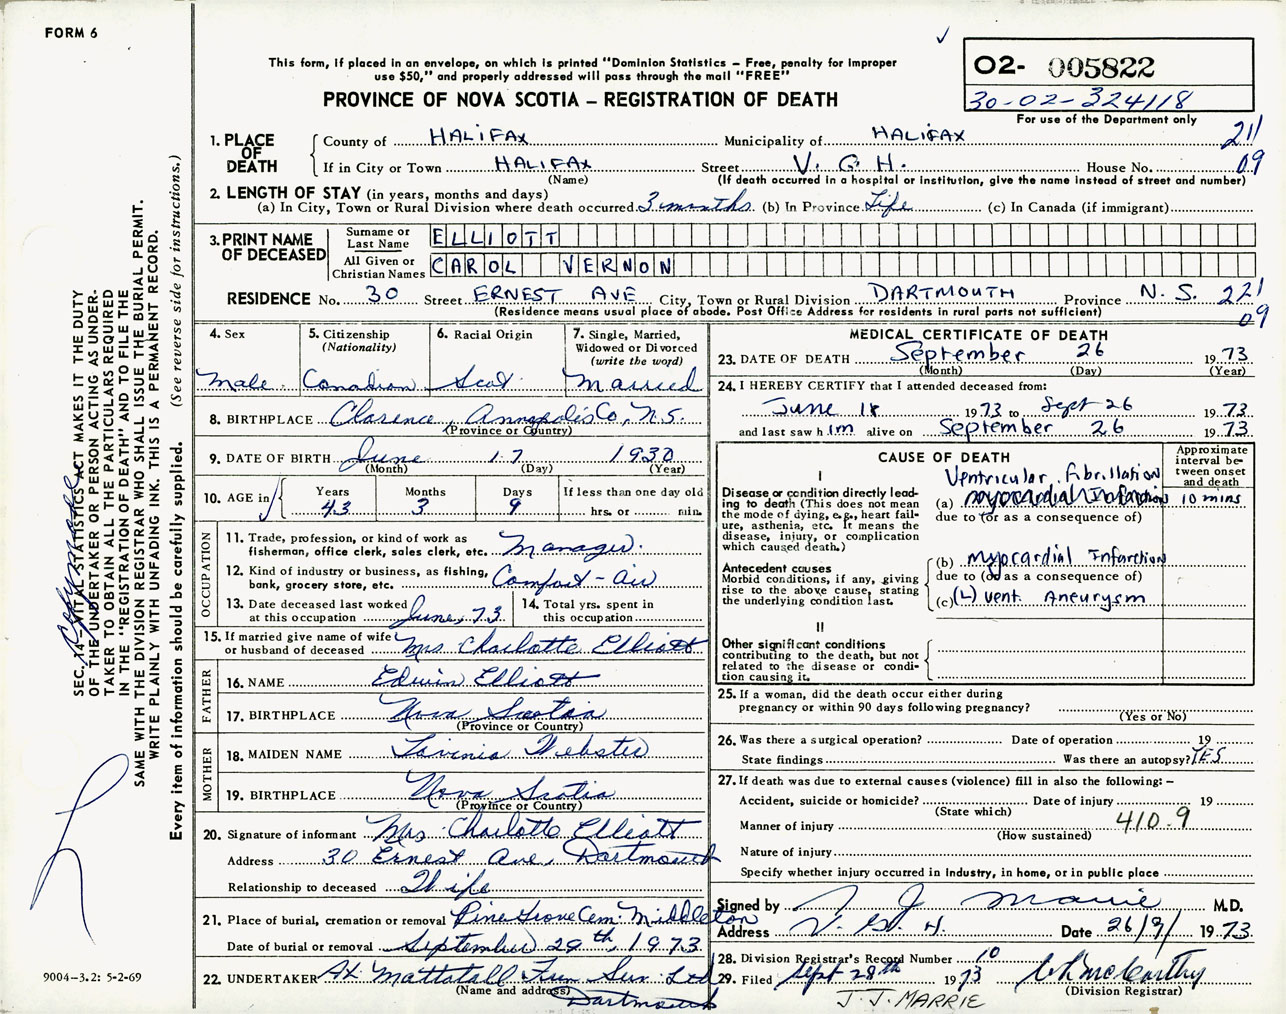 FORM 6
This form, if placed in an envelope, on which is printed "Dominion Statistics – Free, penalty for improper
use $50," and properly addressed will pass through the mail "FREE"
PROVINCE OF NOVA SCOTIA – REGISTRATION OF DEATH
O2- 005822
30-02-324118
For use of the Department only
1. PLACE OF DEATH
County of HALIFAX Municipality of HALIFAX 211
If in City or Town HALIFAX Street V. G. H. House No. 09
(Name) (If death occurred in a hospital or institution, give the name instead of street and number)
2. LENGTH OF STAY (in years, months and days)
(a) In City, Town or Rural Division where death occurred 3 months (b) In Province Life (c) In Canada (if immigrant)
3. PRINT NAME OF DECEASED
Surname or Last Name ELLIOTT
All Given or Christian Names CAROL VERNON
RESIDENCE No. 30 Street ERNEST AVE City, Town or Rural Division DARTMOUTH Province N. S. 221
(Residence means usual place of abode. Post Office Address for residents in rural parts not sufficient) 09
4. Sex
Male
5. Citizenship
(Nationality)
Canadian
6. Racial Origin
Scot
7. Single, Married,
Widowed or Divorced
(write the word)
Married
8. BIRTHPLACE Clarence, Annapolis Co, N.S.
(Province or Country)
9. DATE OF BIRTH June 17 1930
(Month) (Day) (Year)
10. AGE in
Years Months Days If less than one day old
43 3 9 hrs. or min.
OCCUPATION
11. Trade, profession, or kind of work as
fisherman, office clerk, sales clerk, etc. Manager.
12. Kind of industry or business, as fishing,
bank, grocery store, etc. Comfort-Air
13. Date deceased last worked
at this occupation June, 73
14. Total yrs. spent in
this occupation
15. If married give name of wife
or husband of deceased Mrs Charlotte Elliott
FATHER
16. NAME Edwin Elliott
17. BIRTHPLACE Nova Scotia
(Province or Country)
MOTHER
18. MAIDEN NAME Lavinia Webster
19. BIRTHPLACE Nova Scotia
(Province or Country)
20. Signature of informant Mrs. Charlotte Elliott
Address 30 Ernest Ave, Dartmouth
Relationship to deceased Wife
21. Place of burial, cremation or removal Pine Grove Cem. Middleton
Date of burial or removal September 29th, 1973
22. UNDERTAKER Mattatall Fun. Ser. Ltd
(Name and address) Dartmouth
MEDICAL CERTIFICATE OF DEATH
23. DATE OF DEATH September 26 1973
(Month) (Day) (Year)
24. I HEREBY CERTIFY that I attended deceased from:
June 18 1973 to Sept 26 1973
and last saw him alive on September 26 1973
CAUSE OF DEATH
Approximate interval between onset and death
I
Disease or condition directly leading to death (This does not mean the mode of dying, e.g., heart failure, asthenia, etc. It means the disease, injury, or complication which caused death.)
Ventricular fibrillation
(a) myocardial Infarction 10 mins
due to (or as a consequence of)
Antecedent causes
Morbid conditions, if any, giving rise to the above cause, stating the underlying condition last.
(b) myocardial Infarction
due to (or as a consequence of)
(c) (L) vent. Aneurysm
II
Other significant conditions
contributing to the death, but not related to the disease or condition causing it.
25. If a woman, did the death occur either during
pregnancy or within 90 days following pregnancy?
(Yes or No)
26. Was there a surgical operation? Date of operation 19
State findings Was there an autopsy? YES
27. If death was due to external causes (violence) fill in also the following: –
Accident, suicide or homicide? Date of injury 19
(State which)
Manner of injury 410.9
(How sustained)
Nature of injury
Specify whether injury occurred in industry, in home, or in public place
Signed by J J Marrie M.D.
Address V. G. H. Date 26/9/1973
28. Division Registrar's Record Number 10
29. Filed Sept 28th 1973
(Division Registrar)
J. J. MARRIE
SEC. 14 – VITAL STATISTICS ACT MAKES IT THE DUTY
OF THE UNDERTAKER OR PERSON ACTING AS UNDER-
TAKER TO OBTAIN ALL THE PARTICULARS REQUIRED
IN THE "REGISTRATION OF DEATH" AND TO FILE THE
SAME WITH THE DIVISION REGISTRAR WHO SHALL ISSUE THE BURIAL PERMIT.
WRITE PLAINLY WITH UNFADING INK. THIS IS A PERMANENT RECORD.
Every item of information should be carefully supplied. (See reverse side for instructions.)
9004-3.2: 5-2-69